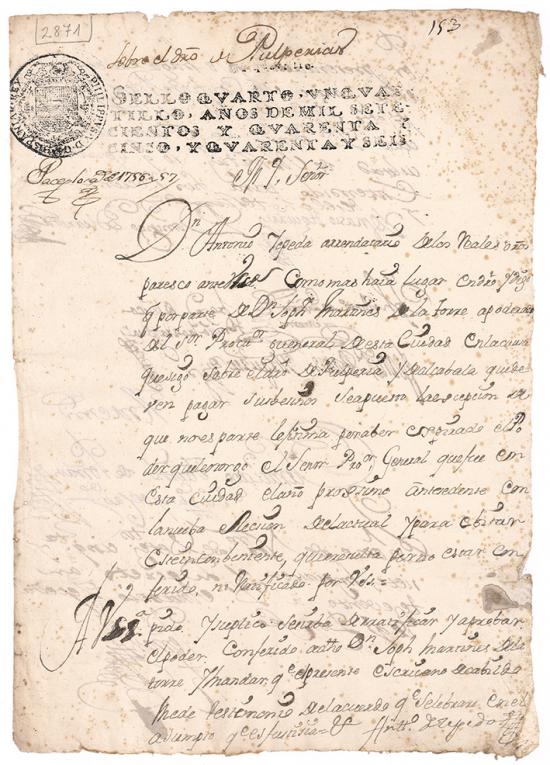 2871
153
Sobre el dro de Pulperias
SELLO QVARTO, VN QVAR
TILLO, AÑOS DE MIL SETE
CIENTOS Y QVARENTA Y
CINCO, Y QVARENTA Y SEIS
PHILIPPVS V D G HISPANIAR REX
1756 y 57
Señor
Dn Antonio Zepeda arrendatario de los Rales dros
paresco ante VSS Como mas haia Lugar en dro y digo
q por parte de Dn Joph Martines de la torre apoderado
del Sor Procor General de esta Ciudad en la causa
que sigo sobre el dro de Pulperia y alcabala que de
ven pagar sus vesinos se a puesto la ecepcion de
que no es parte lexitima por aber espirado el Po
der que le otorgo el Señor Pror General que fue en
esta ciudad el año proximo antecedente con
la nueba elecsion del actual y para obiar
este incombeniente, que resulta por no estar con
ferido, ni Ratificado por VSS
A VSS pido y suplico se sirba de ratificar y aprobar
el poder Conferido a dho Dn Joph Martines de la
torre y mandar qe el presente escrivano de cabildo
me de testimonio del acuerdo qe selebrare en el
asumpto qe es justisia
Antto Zepeda